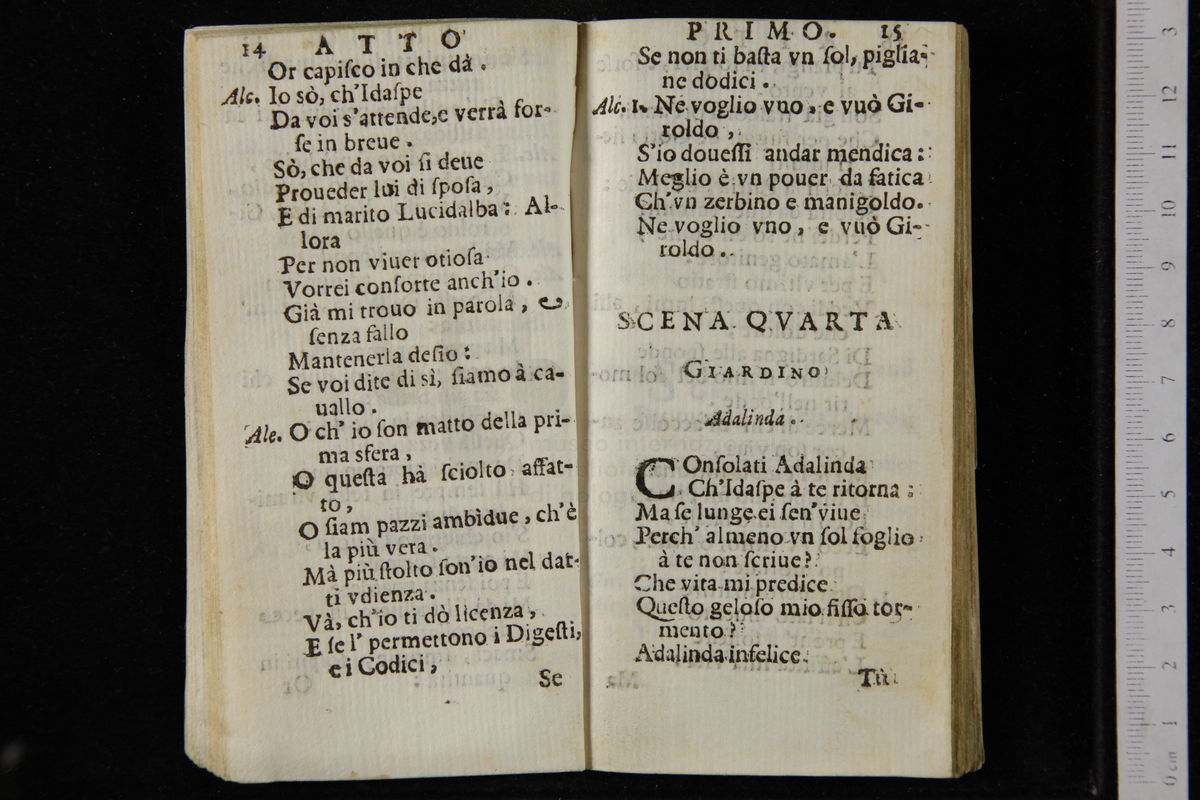 14 ATTO
Or capiſco in che dà.
Alc. Io sò, ch'Idaſpe
Da voi s'attende, e verrà for-
ſe in breue.
Sò, che da voi ſi deue
Proueder lui di ſpoſa,
E di marito Lucidalba: Al-
lora
Per non viuer otioſa
Vorrei conſorte anch'io.
Già mi trouo in parola, e
ſenza fallo
Mantenerla deſio:
Se voi dite di sì, ſiamo à ca-
uallo.
Ale. O ch' io ſon matto della pri-
ma sfera,
O queſta hà ſciolto affat-
to,
O ſiam pazzi ambidue, ch'è
la più vera.
Mà più ſtolto ſon'io nel dar-
ti vdienza.
Và, ch'io ti dò licenza,
E ſe l' permettono i Digeſti,
e i Codici,
Se
PRIMO. 15
Se non ti baſta vn ſol, piglia-
ne dodici.
Alc. 1. Ne voglio vno, e vuò Gi-
roldo,
S'io doueſſi andar mendica:
Meglio è vn pouer da fatica
Ch'vn zerbino e manigoldo.
Ne voglio vno, e vuò Gi-
roldo.
SCENA QVARTA
GIARDINO
Adalinda.
COnſolati Adalinda
Ch'Idaſpe à te ritorna:
Ma ſe lunge ei ſen'viue
Perch' almeno vn ſol foglio
à te non ſcriue?
Che vita mi predice
Queſto geloſo mio fiſſo tor-
mento?
Adalinda infelice.
Tù
0 cm 1 2 3 4 5 6 7 8 9 10 11 12 3